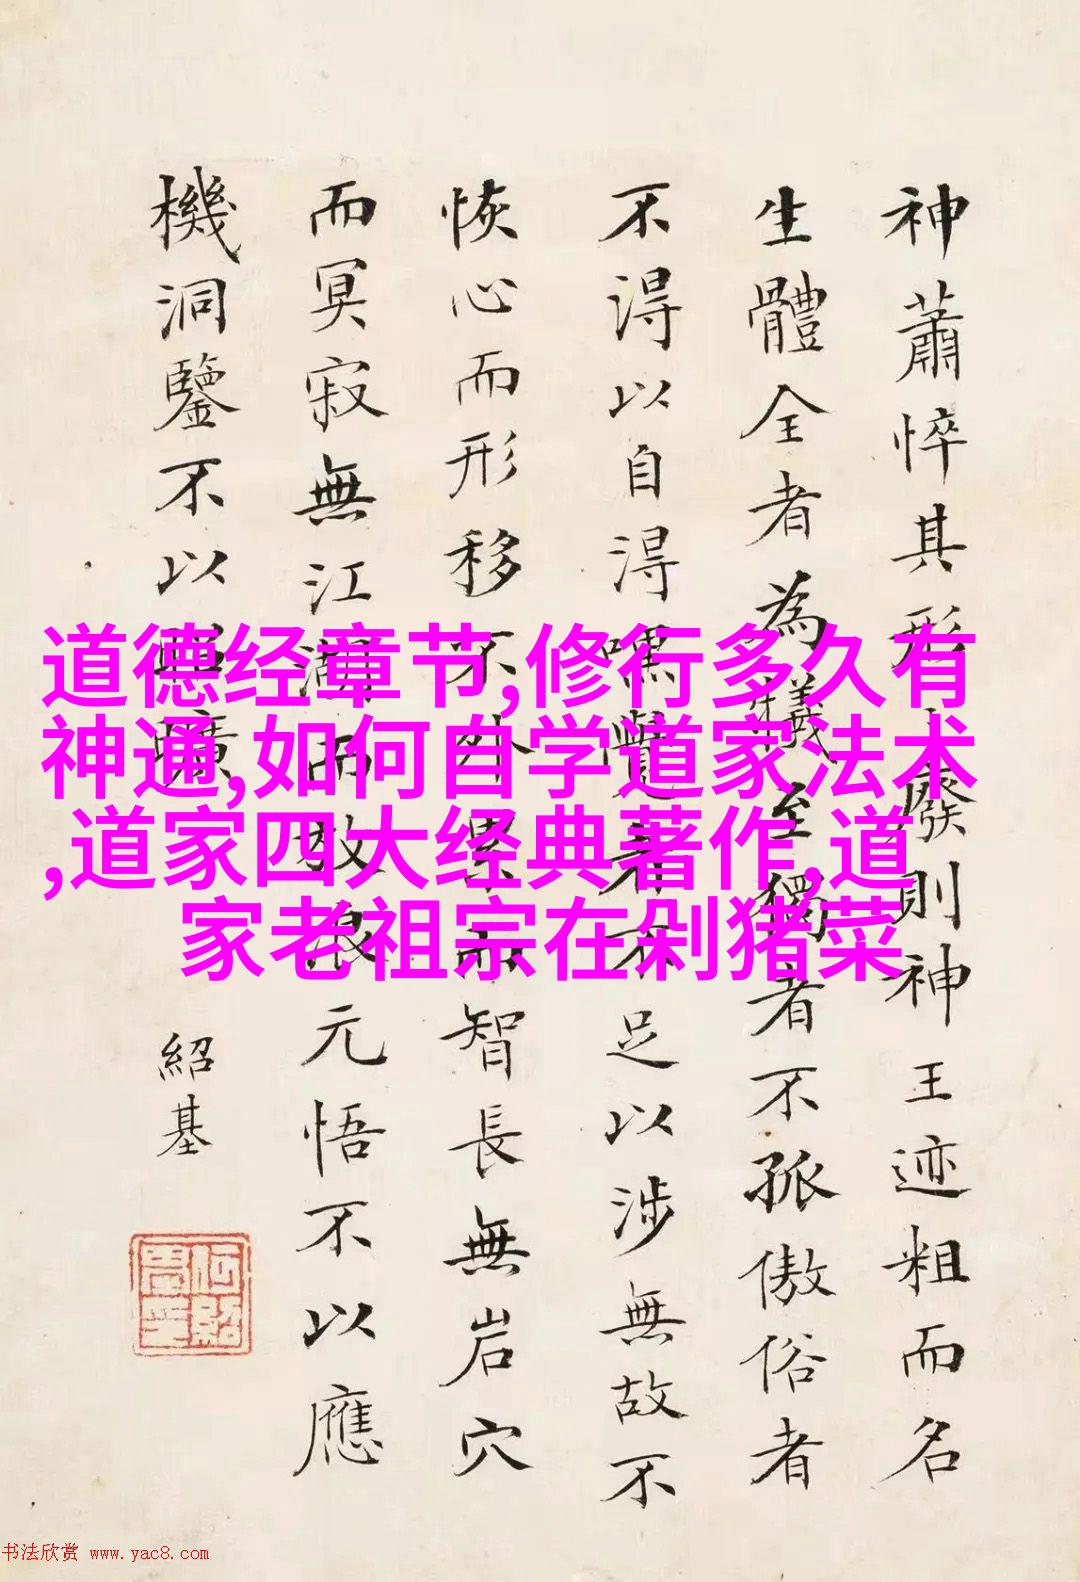 神蕭悴其形廢則神王迹粗而名
生體全者為犧至獨者不孤傲俗者
不得以自得嘿覺者不足以涉無故不
恢心而形移不外累而智長無岩穴
而冥寂無江湖而放浪元悟不以應
機洞鑒不以昭曠
紹基
道德经章节,修行多久有
神通,如何自学道家法术
,道家四大经典著作,道
家老祖宗在剁猪菜
书法欣赏 www.yac8.com